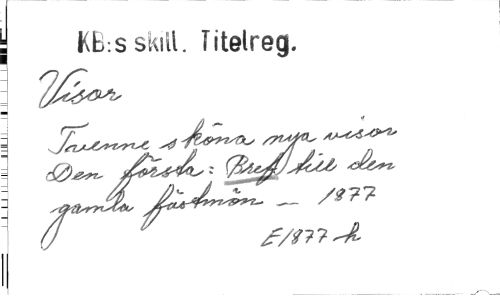 KB:s skill. Titelreg.
Visor
Tvenne sköna nya visor
Den första: Bref till den
gamla fästmön — 1877
E1877 h